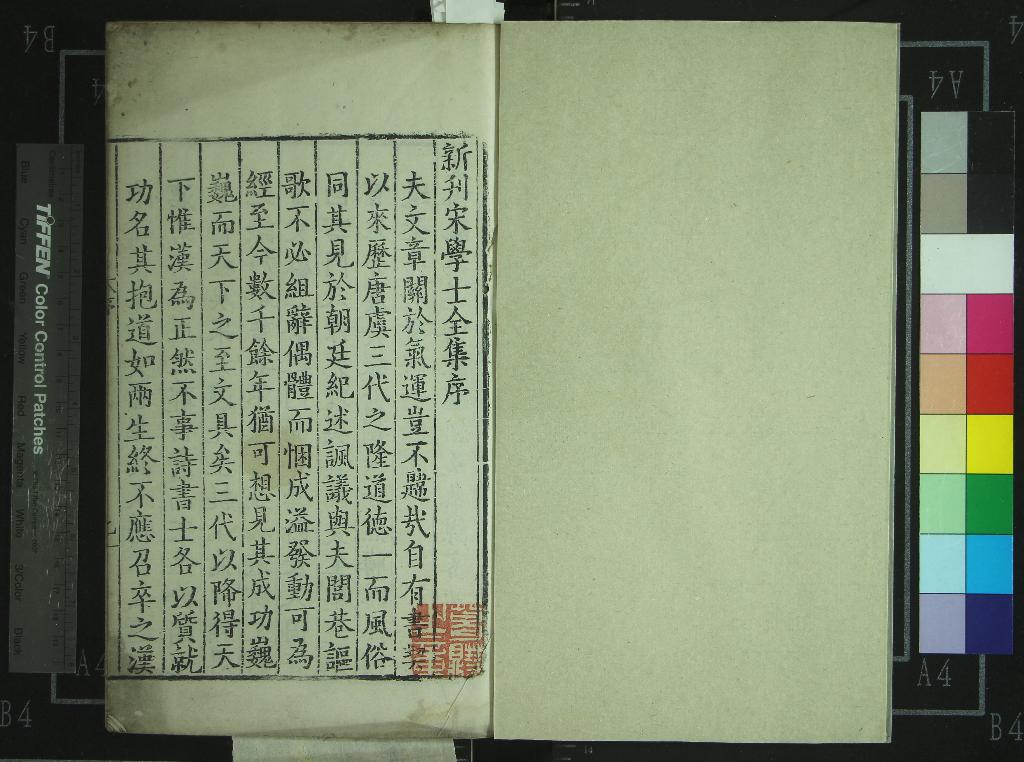 新刋宋學士全集序
夫文章關於氣運豈不韙哉自有書契
以來歷唐虞三代之隆道德一而風俗
同其見於朝廷紀述諷議與夫閭巷謳
歌不必組辭偶體而悃成溢發動可為
經至今數千餘年猶可想見其成功巍
巍而天下之至文具矣三代以降得天
下惟漢為正然不事詩書士各以質就
功名其抱道如兩生終不應召卒之漢
TIFFEN Color Control Patches
Blue Cyan Green Yellow Red Magenta White 3/Color Black
B4
A4
A4
A4
B4
A4
B4